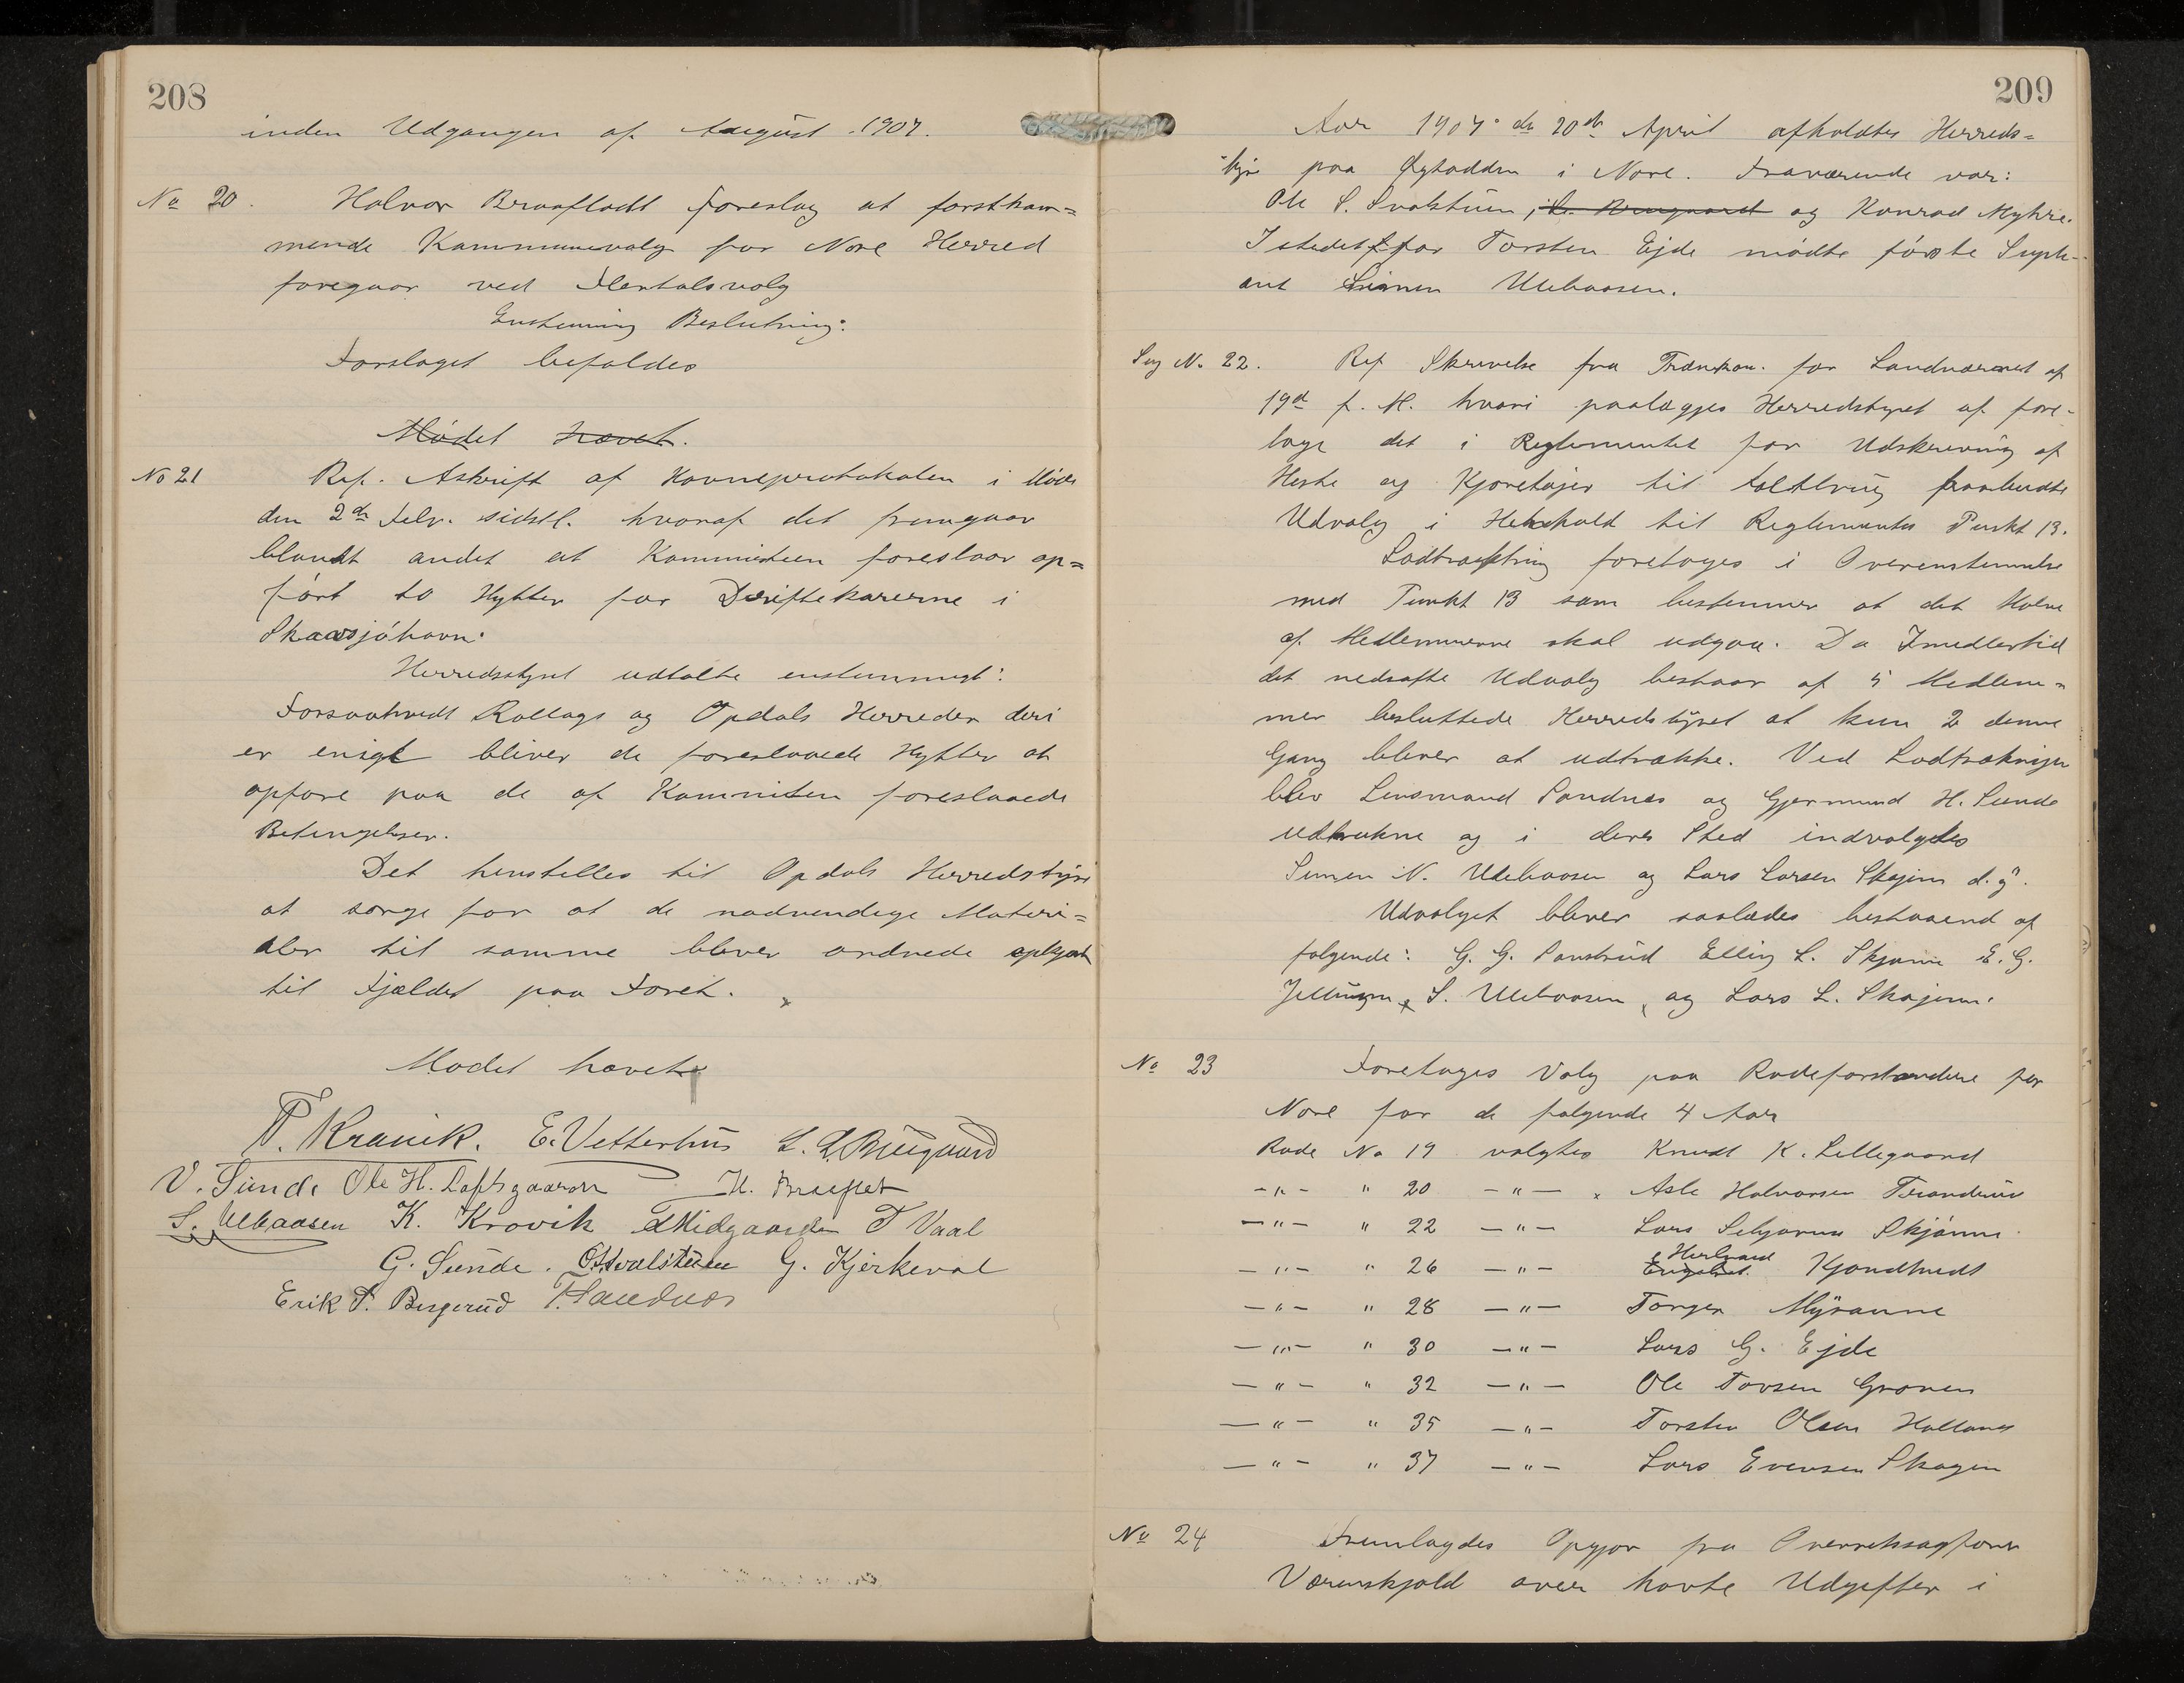 208
inden Udgangen af August 1907.
No 20. Halvor Braafladt foreslog at forstkom=
mende Kommunevalg for Nore Herred
foregaar ved Flertalsvalg
Enstemmig Beslutning:
Forslaget befaldes
Mødet hævet.
No 21 Ref. Askrift af Havneprotokolen i Møde
den 2den Febr. sidstl. hvoraf det fremgaar
blandt andet at Kommiteen foreslaar op=
ført to Hytter for Driftekarerne i
Skaarsjøhavn.
Herredsstyret udtalte enstemmigt:
Forsaavidt Rollags og Opdals Herreder deri
er enigt bliver de foreslaaede Hytter at
opføre paa de af Kommiteen foreslaaede
Betingelser.
Det henstilles til Opdals Herredstyre
at sørge for at de nødvendige Materi=
aler til samme bliver ordnede opkjørt
til Fjældet paa Føret.
Mødet hævet
T. Kravik. E. Vetterhus L. L. Brugaard
V. Sunde Ole H. Loftsgaarden H. Braaflat
S. Ulebaasen K. Kravik E Midgaarden T Vaal
G. Sunde. O S Svalstuen G. Kjerkeval
Erik T. Bergerud T. Sandnæs
209
Aar 1907 den 20de April afholdtes Herreds=
styre paa Øghadden i Nore. Fraværende var:
Ole S. Svalstuen, L. Bruugaard og Konrad Myhre.
Istedetfor Torsten Ejde mødte første Suple-
ant Simen Ulebaasen.
Sag No. 22. Ref Skrivelse fra Trænkom. for Landværnet af
19d f. M. hvori paalægges Herredstyret at fore-
tage det i Reglementet for Udskrivning af
Heste og Kjøretøjer til Feltbrug paabudte
Udvalg i Henhold til Reglementes Punkt 13.
Lodtrækning foretages i Overenstemmelse
med Punkt 13 som bestemmer at det Halve
af Medlemmerne skal udgaa. Da Imedlertid
det nedsatte Udvalg bestaar af 5 Medlem=
mer besluttede Herredstyret at kun 2 denne
Gang bliver at udtrække. Ved Lodtrækningen
blev Lensmand Sandnes og Gjermund H. Sunde
udtrukne og i deres Sted indvalgtes
Simen N. Ulebaasen og Lars Larsen Skajem d.y.
Udvalget bliver saaledes bestaaend af
følgende: G. G. Ellin L. Skjønne E. G.
S. Ulebaasen og Lars L. Skajem.
No 23 Foretages Valg paa Rodeforstandere for
Nore for de følgende 4 Aar
Rode No 19 valgtes Knudt K. Lillegaard
-"- " 20 -"- Asle Halvorsen
-"- " 22 -"- Lars Skjønne
-"- " 26 -"- Herbrand Kjondtvedt
-"- " 28 -"- Torger Myranne
-"- " 30 -"- Lars G. Ejde
-"- " 32 -"- Ole Tovsen Groven
-"- " 35 -"- Torsten Olsen Halland
-"- " 37 -"- Lars Evensen Skagen
No 24 Fremlagdes Opgjør fra Overretssagfører
Værenskjold over havte Udgifter i